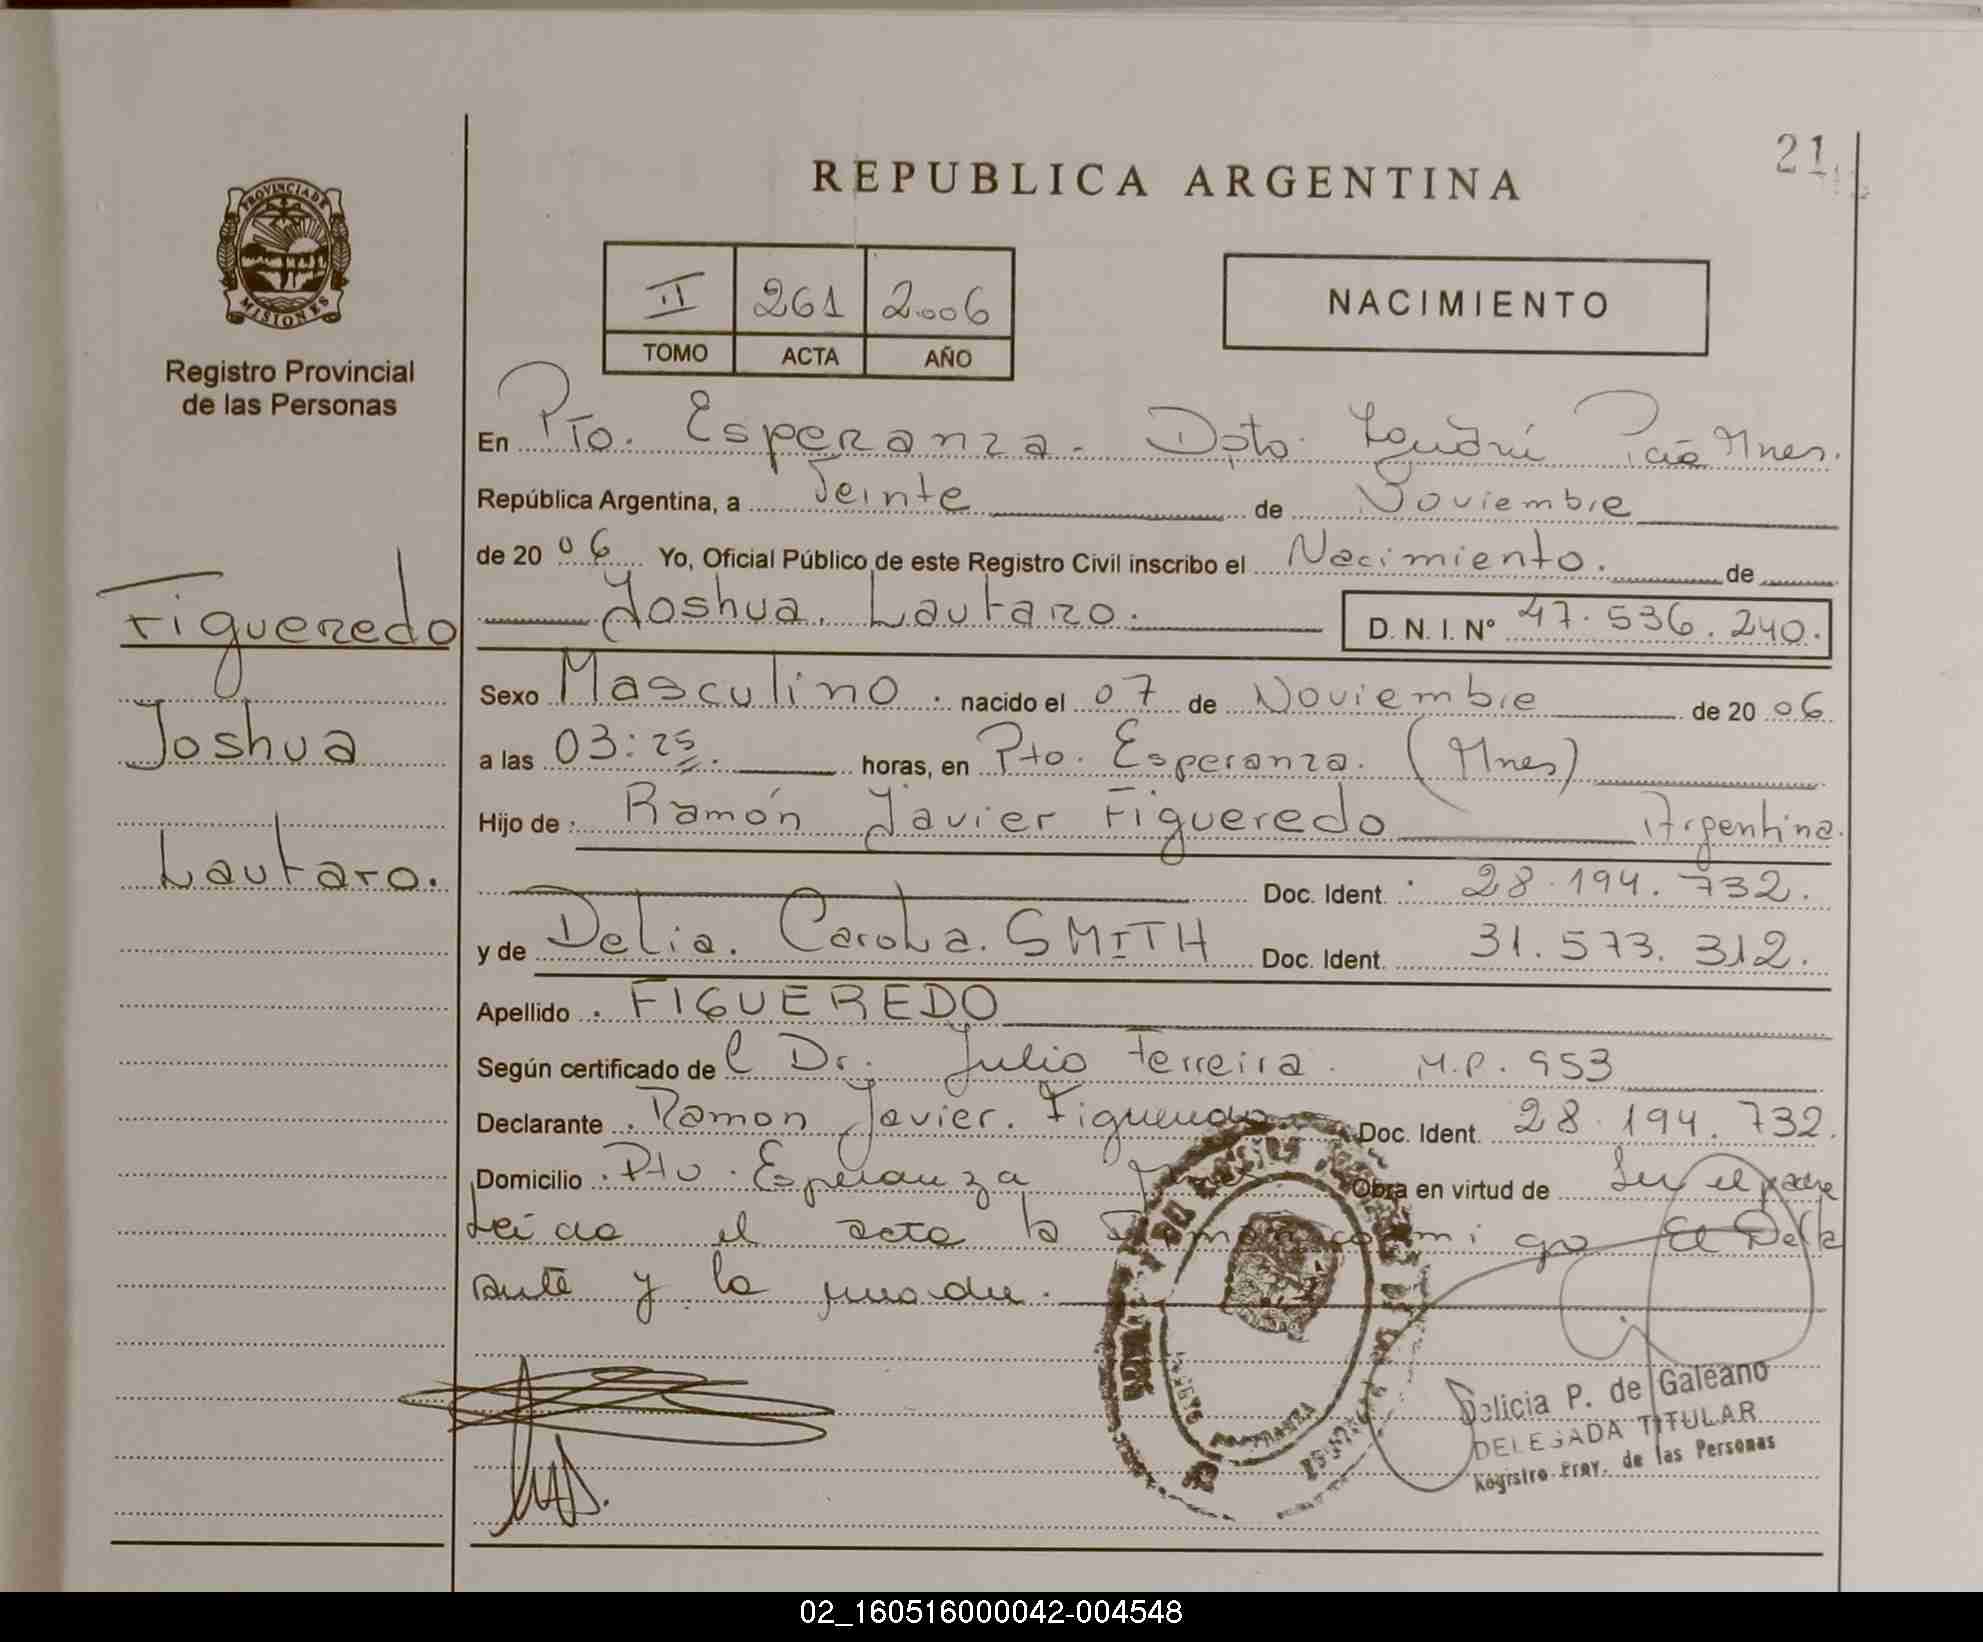 21
REPUBLICA ARGENTINA
PROVINCIA DE
MISIONES
Registro Provincial
de las Personas
II 261 2.006
TOMO ACTA AÑO
NACIMIENTO
Figueredo
Joshua
Lautaro.
En Pto. Esperanza. Dpto. Mnes.
República Argentina, a Veinte de Noviembre
de 20 06 Yo, Oficial Público de este Registro Civil inscribo el Nacimiento. de
Joshua. Lautaro. D. N. I. N° 47.536.240.
Sexo Masculino. nacido el 07 de Noviembre de 20 06
a las 03:25. horas, en Pto. Esperanza. (Mnes)
Hijo de: Ramón Javier Figueredo Argentina.
Doc. Ident. 28.194.732.
y de Delia. SMITH Doc. Ident. 31.573.312.
Apellido FIGUEREDO
Según certificado de Dr. Julio Ferreira. M.P. 953
Declarante Ramon Javier. Figueredo Doc. Ident. 28.194.732.
Domicilio Pto. Esperanza Obra en virtud de Ser el padre
Leida el acta la con mi go el Decla
ante y la madre.
Delicia P. de Galeano
DELEGADA TITULAR
Registro Prov. de las Personas
02_160516000042-004548